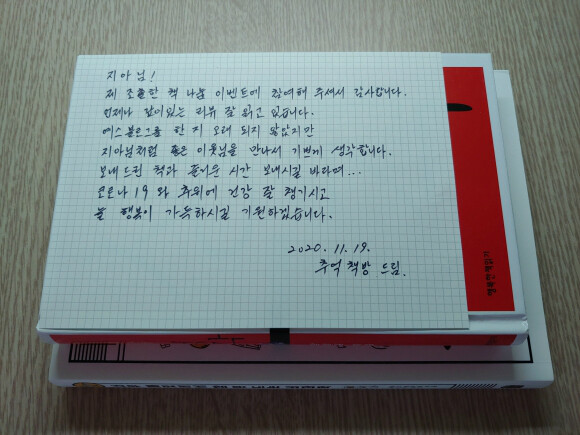 지아님!
제 조촐한 책 나눔 이벤트에 참여해 주셔서 감사합니다.
언제나 깊이있는 리뷰 잘 읽고 있습니다.
예스블로그를 한 지 오래 되지 않았지만
지아님처럼 좋은 이웃님을 만나서 기쁘게 생각합니다.
보내드린 책과 즐거운 시간 보내시길 바라며...
코로나 19 와 추위에 건강 잘 챙기시고
늘 행복이 가득하시길 기원하겠습니다.
2020. 11. 19.
추억 책방 드림.
행복한책읽기